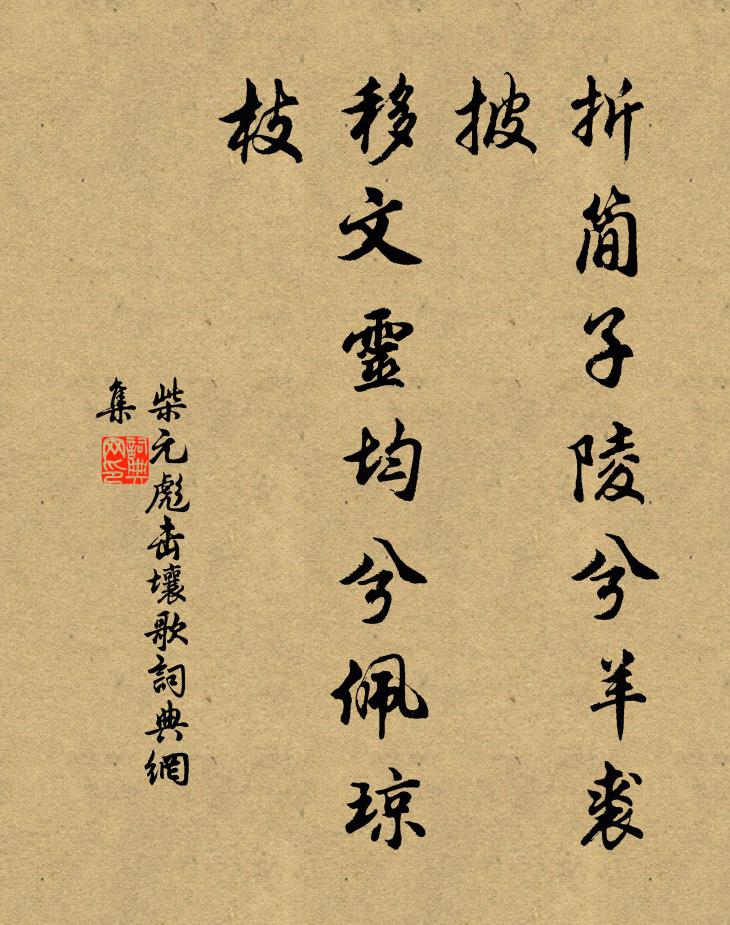 折简子陵兮羊裘
披
移文靈均兮佩琼
枝
柴元彪击壤歌詞典網
集
詞典网印